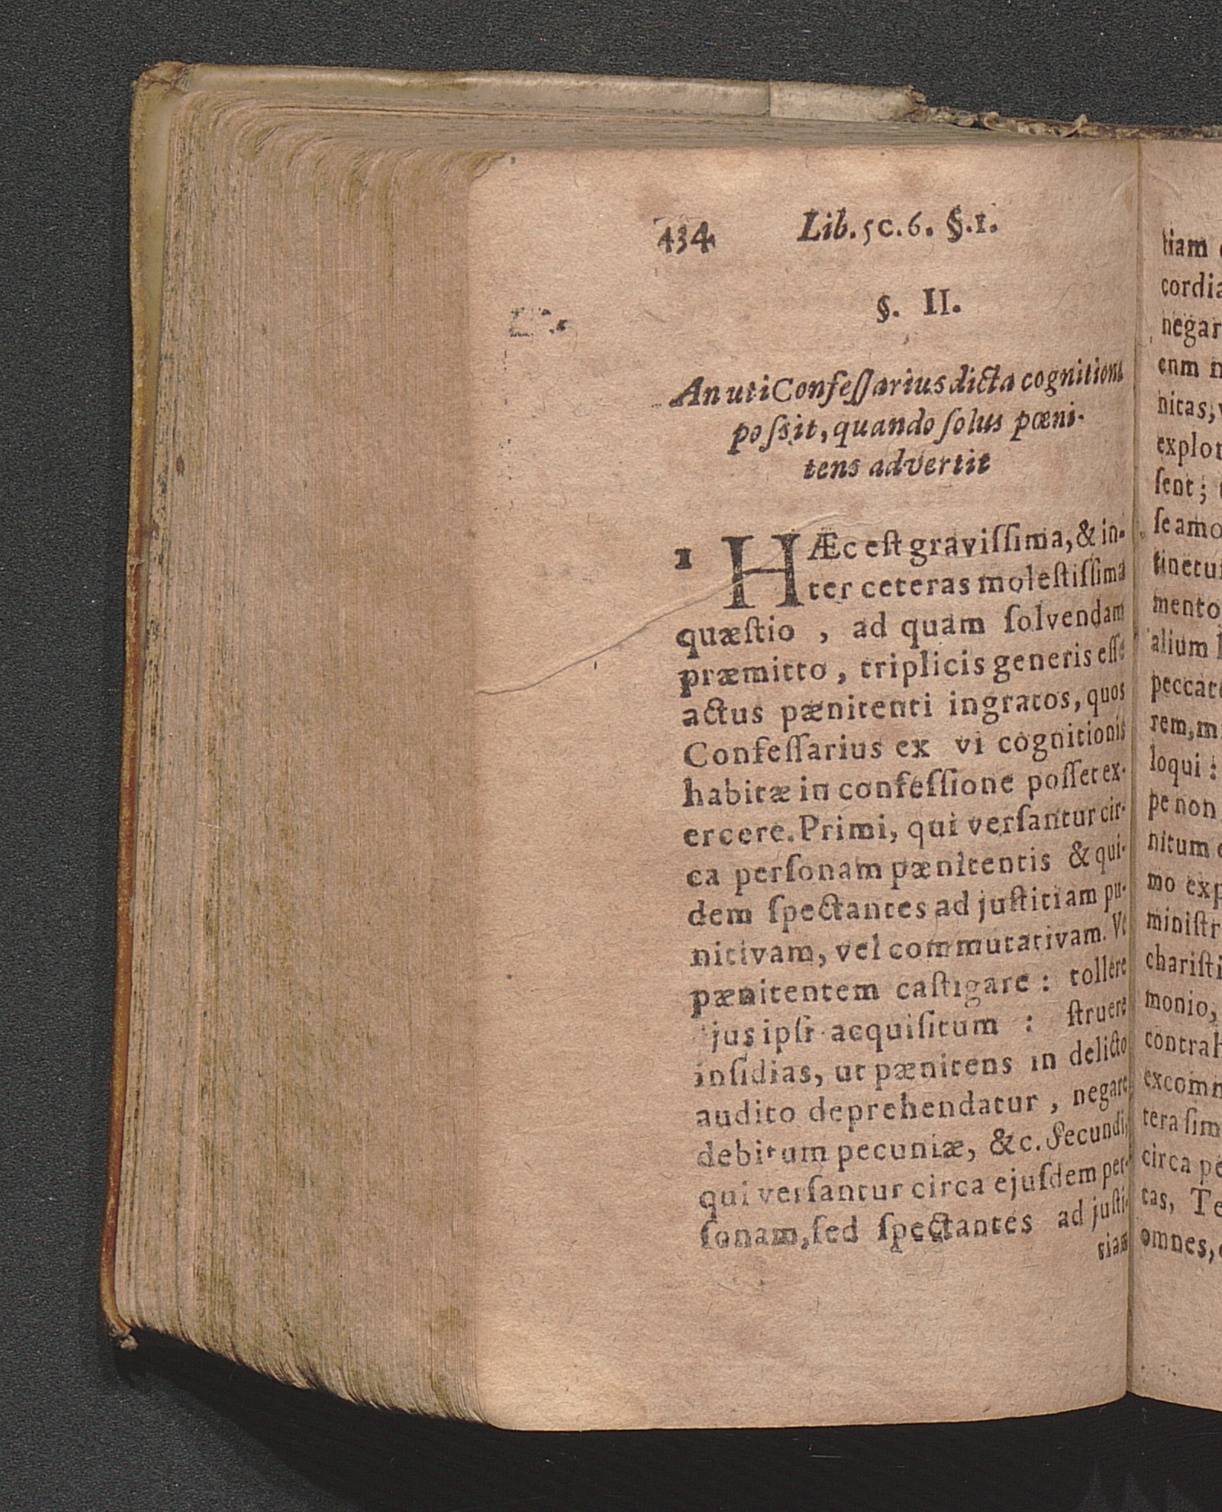 434 Lib. 5 c. 6. §. 1.
§. II.
An uti Confeſſarius dicta cognitione
poſsit, quando ſolus pœni-
tens advertit
1 HÆc eſt graviſſima, & in-
ter ceteras moleſtiſſima
quæſtio , ad quam ſolvendam
præmitto , triplicis generis eſſe
actus pænitenti ingratos, quos
Confeſſarius ex vi cognitionis
habitæ in confeſſione poſſet ex-
ercere. Primi, qui verſantur cir-
ca perſonam pænitentis & qui-
dem ſpectantes ad juſtitiam pu-
nitivam, vel commutativam. Vt
pænitentem caſtigare : tollere
jus ipſi acquiſitum : ſtruere
inſidias, ut pænitens in delicto
audito deprehendatur , negare
debitum pecuniæ, &c. Secundi,
qui verſantur circa ejuſdem per-
ſonam, ſed ſpectantes ad juſti-
tiam
tiam
cordia
negar
enm
nitas,
explor
ſent ;
ſe amo
tinetur
mento
alium
peccat
rem, m
loqui :
pe non
nitum
mo exp
miniſtr
chariſti
monio,
contrah
excomm
tera ſim
circa pe
tas, Te
omnes,